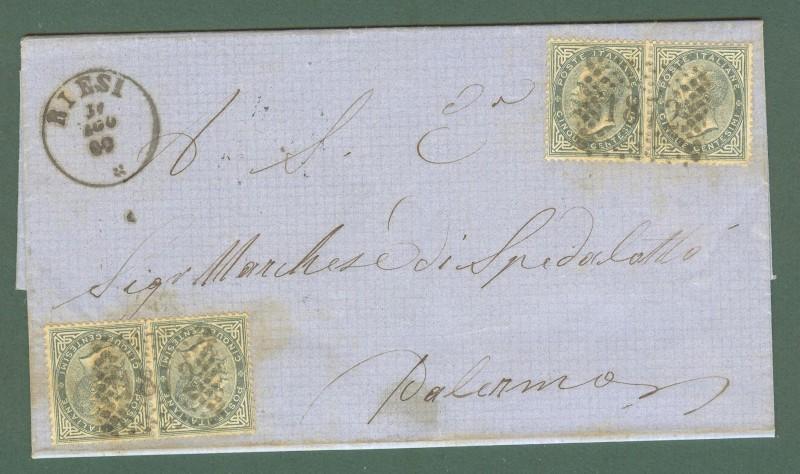 RIESI
AGO
POSTE ITALIANE
CINQUE CENTESIMI
POSTE ITALIANE
CINQUE CENTESIMI
A S. E.
Sigr Marchese di Spedalotto
Palermo
CINQUE CENTESIMI
POSTE ITALIANE
CINQUE CENTESIMI
POSTE ITALIANE